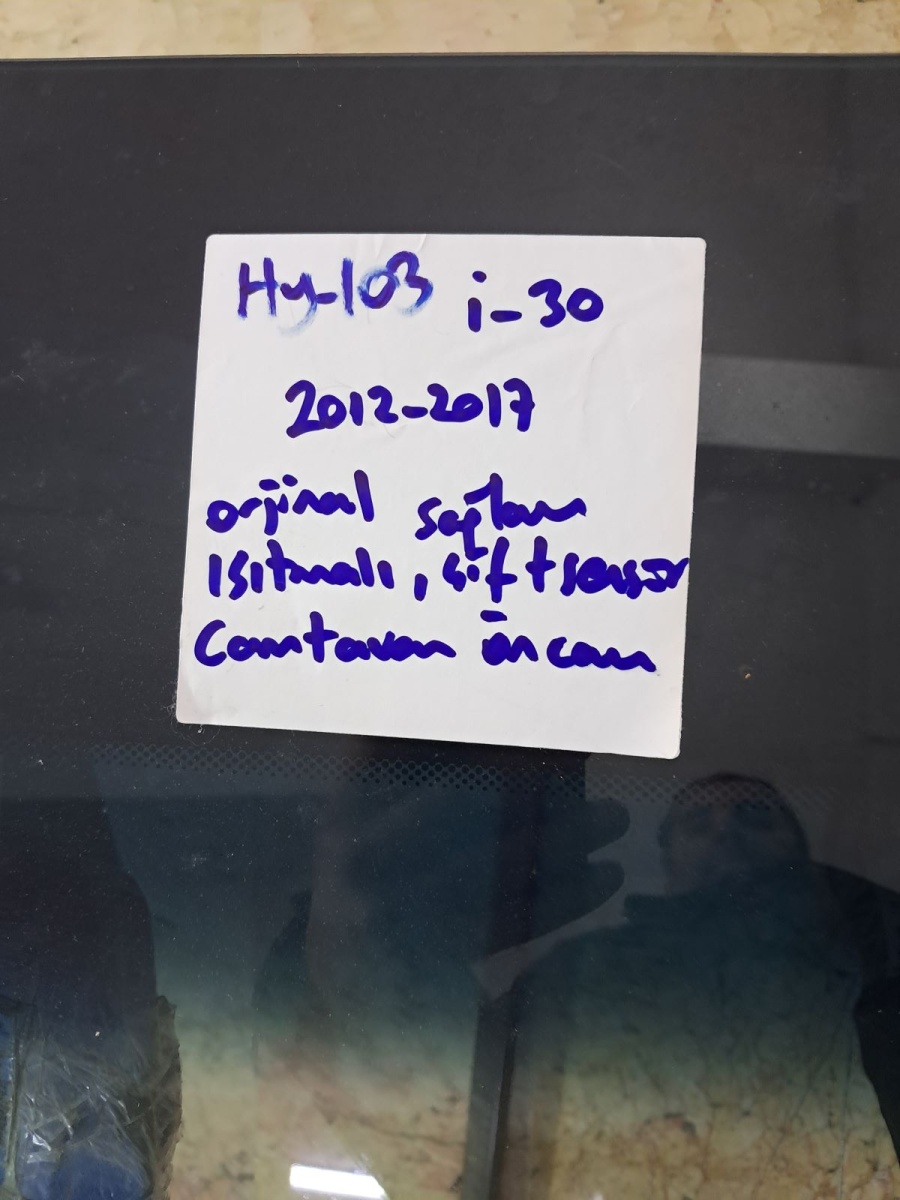 Hy-103 i-30
2012-2017
orjinal sağlam
ısıtmalı, çift sensör
Camtavan ön cam